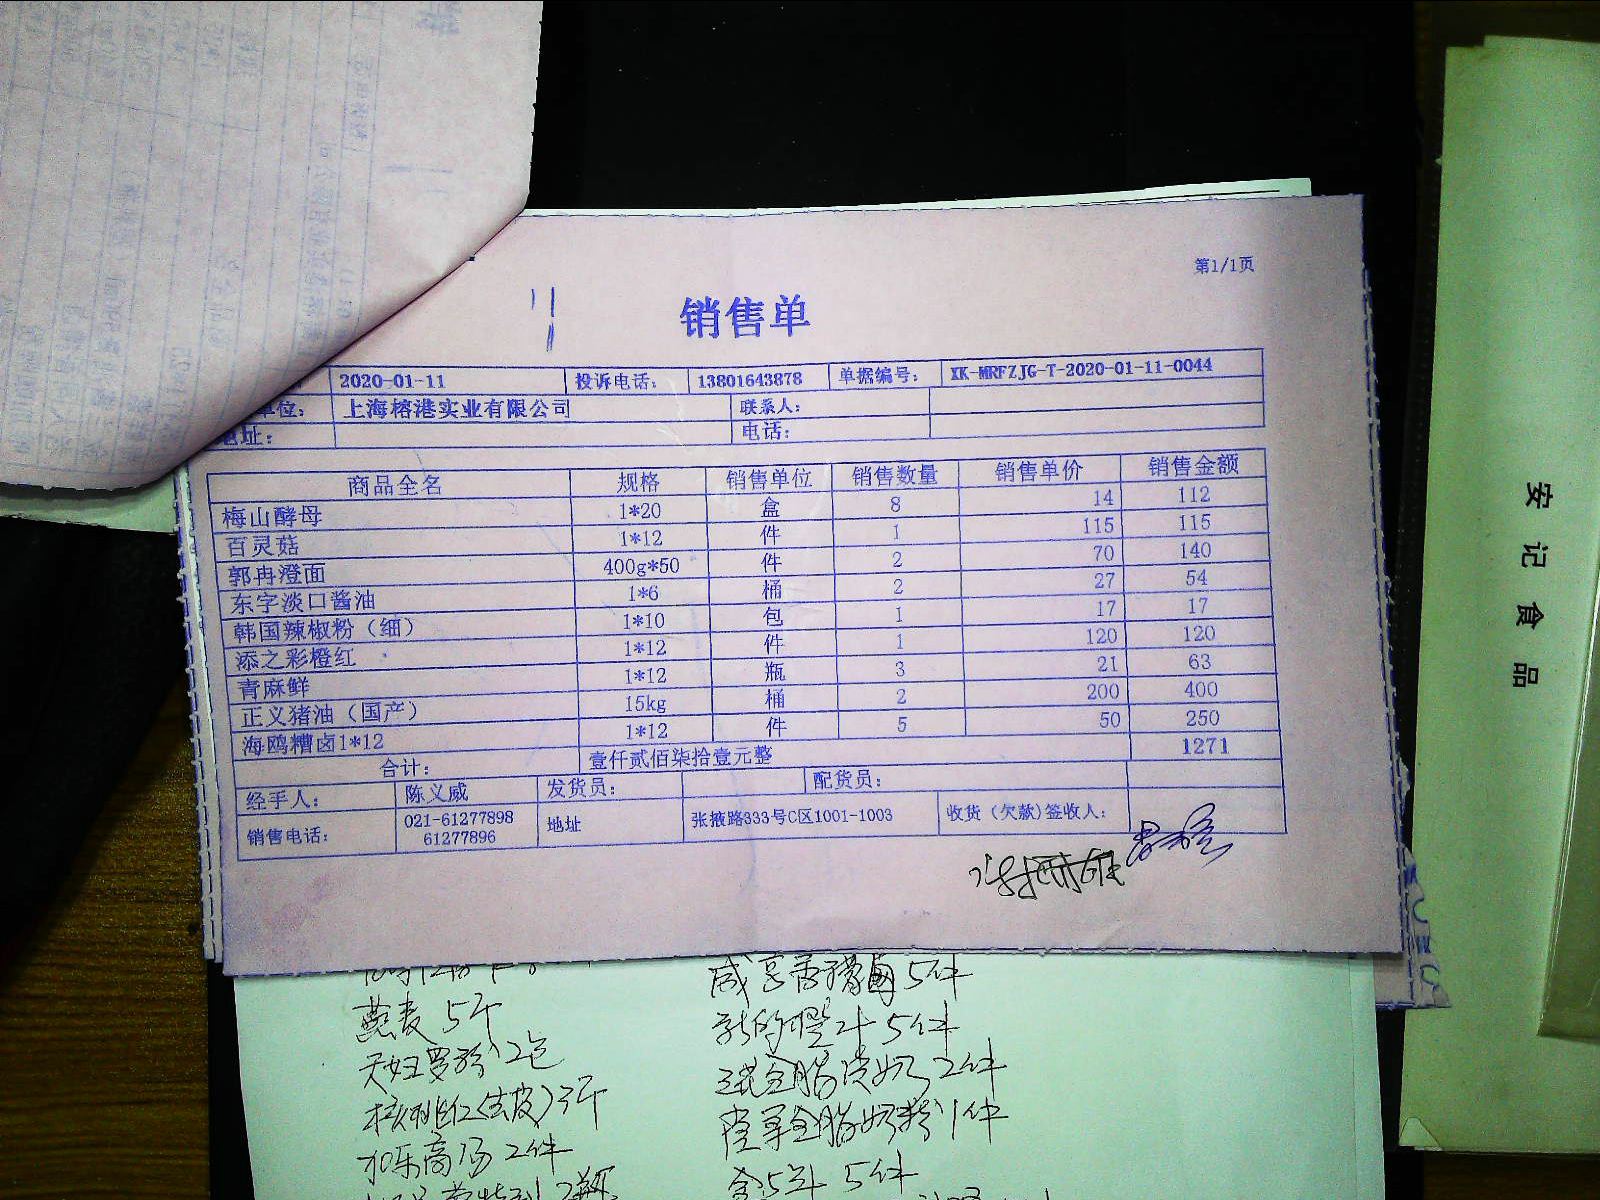 第1/1页
销售单
2020-01-11 投诉电话： 13801643878 单据编号： XK-MRFZJG-T-2020-01-11-0044
单位： 上海榕港实业有限公司 联系人：
地址： 电话：
商品全名 规格 销售单位 销售数量 销售单价 销售金额
梅山酵母 1*20 盒 8 14 112
百灵菇 1*12 件 1 115 115
郭冉澄面 400g*50 件 2 70 140
东字淡口酱油 1*6 桶 2 27 54
韩国辣椒粉（细） 1*10 包 1 17 17
添之彩橙红 1*12 件 1 120 120
青麻鲜 1*12 瓶 3 21 63
正义猪油（国产） 15kg 桶 2 200 400
海鸥糟卤1*12 1*12 件 5 50 250
合计： 壹仟贰佰柒拾壹元整 1271
经手人： 陈义威 发货员： 配货员：
销售电话： 021-61277898 61277896 地址 张掖路333号C区1001-1003 收货（欠款)签收人：
5件
燕麦 5斤 5件
天妇罗粉 2包 2件
核桃仁(去皮) 3斤 全脂奶粉 1件
2件 5件
安记食品